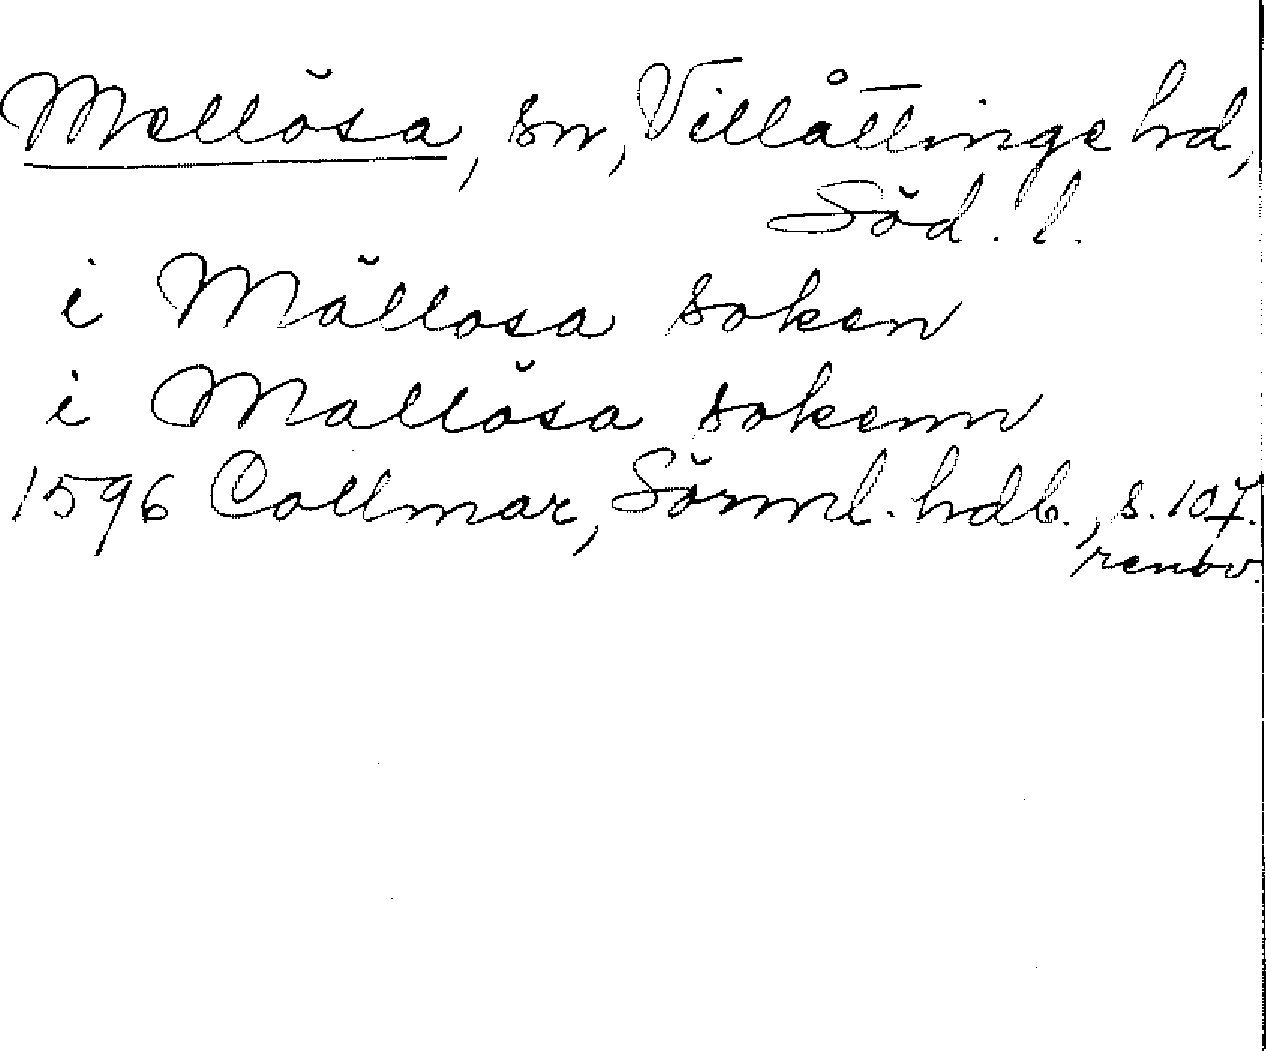 Mellösa, sn, Villåttinge hd,
Söd. l.
i Mällosa soken
i Mallösa sokenn
1596 Collmar, Sörml. hdl., s. 107.
renov.